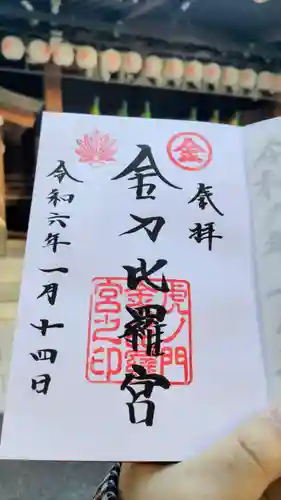 奉拝
㊎
金刀比羅宮
虎ノ門
金刀比羅
宮之印
令和六年一月十四日